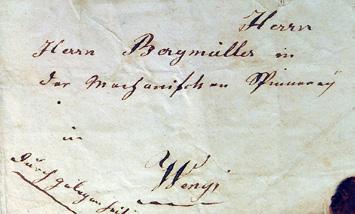 Herrn
Herrn Bergmüller in
der Mechanischen Spinnerey
in
Wengi
durch gelegenheit